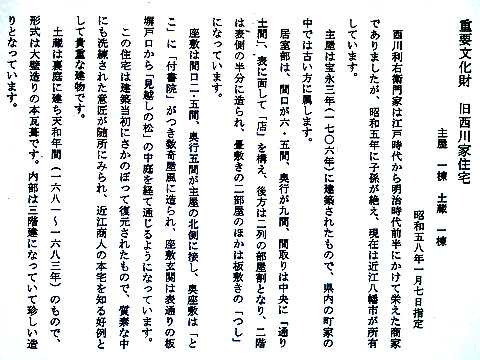 重要文化財　旧西川家住宅
主屋　一棟　土蔵　一棟
昭和五八年一月七日指定
西川利右衛門家は江戸時代から明治時代前半にかけて栄えた商家
でありましたが、昭和五年に子孫が絶え、現在は近江八幡市が所有
しています。
主屋は宝永三年（一七〇六年）に建築されたもので、県内の町家の
中では古い方に属します。
居室部は、間口が六・五間、奥行が九間、間取りは中央に「通り
土間」、表に面して「店」を構え、後方は二列の部屋割となり、二階
は表側の半分に造られ、畳敷きの二部屋のほかは板敷きの「つし」
になっています。
座敷は間口二・五間、奥行五間が主屋の北側に接し、奥座敷は「と
こ」に「付書院」がつき数寄屋風に造られ、座敷玄関は表通りの板
塀戸口から「見越しの松」の中庭を経て通じるようになっています。
この住宅は建築当初にさかのぼって復元されたもので、質素な中
にも洗練された意匠が随所にみられ、近江商人の本宅を知る好例と
して貴重な建物です。
土蔵は裏庭に建ち天和年間（一六八一〜一六八三年）のもので、
形式は大壁造りの本瓦葺です。内部は三階建になっていて珍しい造
りとなっています。